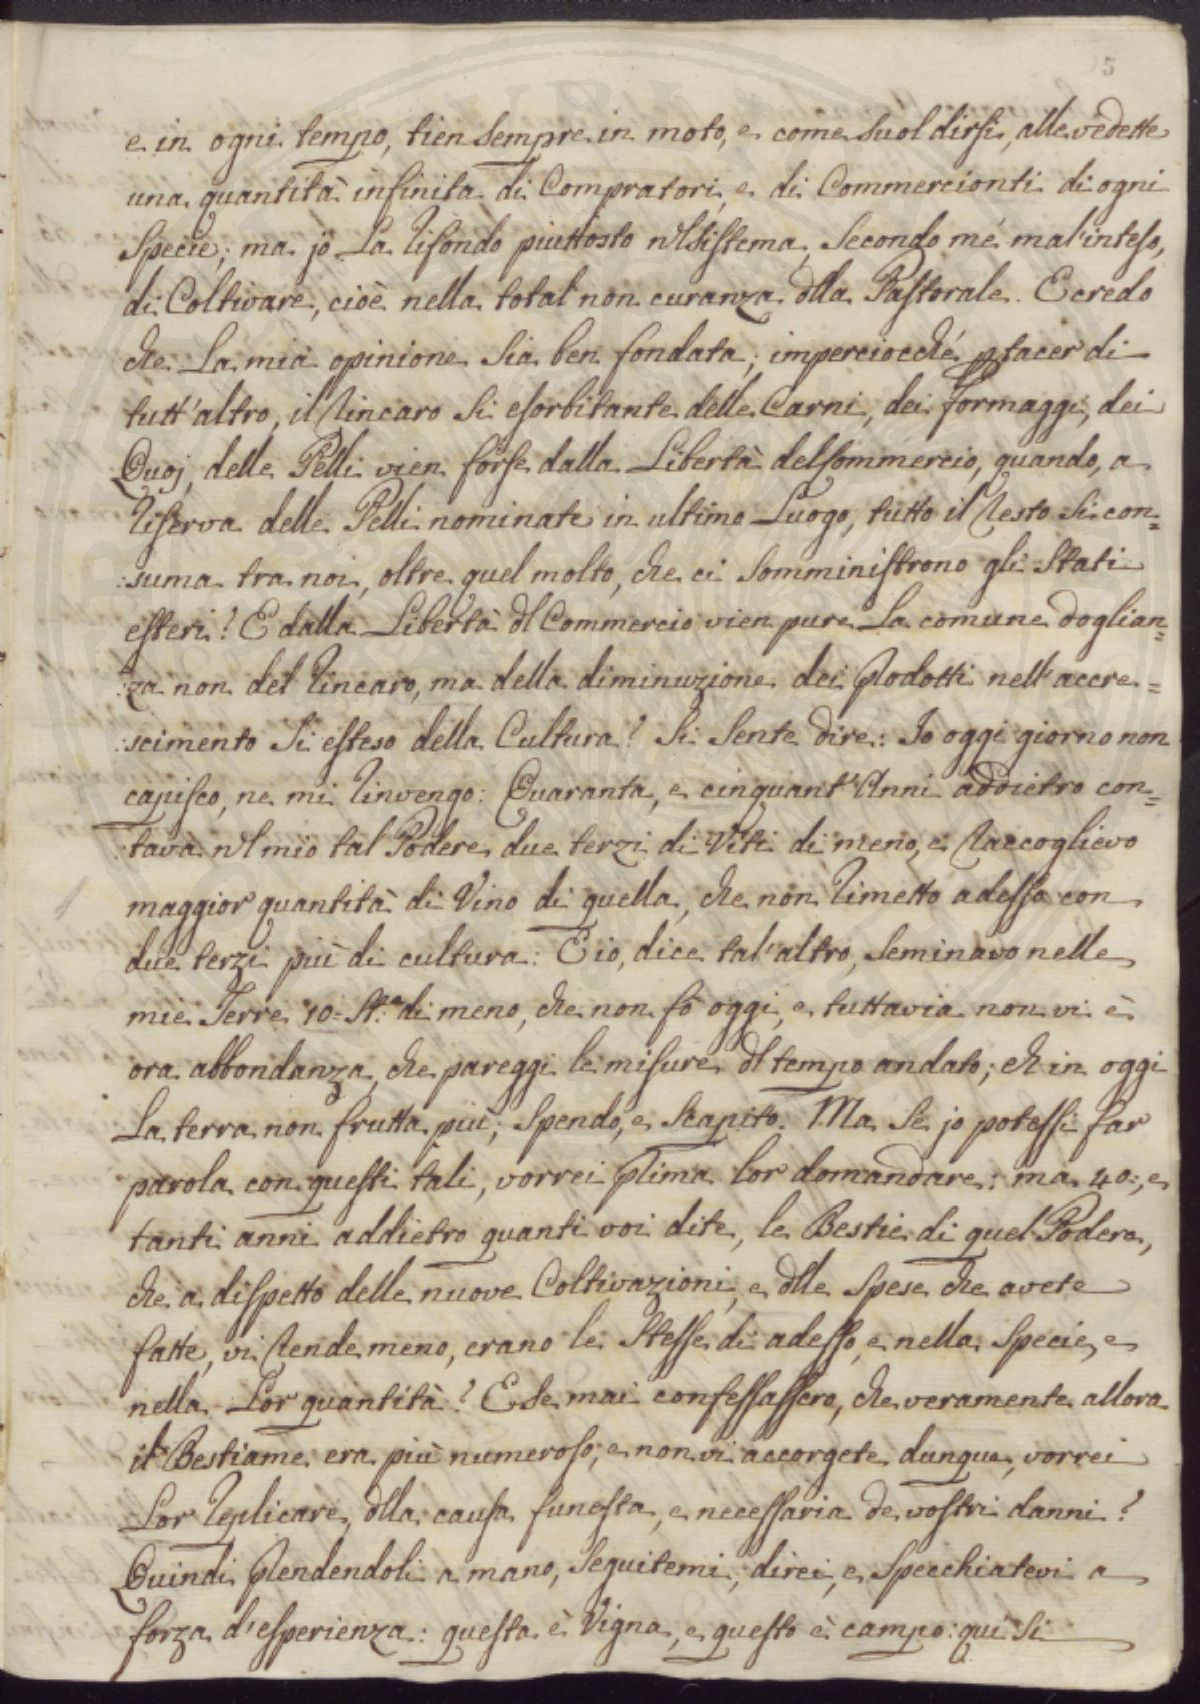 5
e in ogni tempo, tien sempre in moto, e come suol dirsi, alle vedette
una quantità infinita di Compratori, e di Commercionti di ogni
Specie; ma jo La rifondo piuttosto nl sistema, Secondo mé mal'inteso,
di Coltivare, cioè nella total non curanza dlla Pastorale. E credo
che La mia opinione Sia ben fondata; imperciocché p tacer di
tutt'altro, il Rincaro Si esorbitante delle Carni, dei formaggi, dei
Quoj, delle Pelli vien forse dalla Libertà del Commercio, quando, a
riserva delle Pelli nominate in ultimo Luogo, tutto il Resto Si con=
:suma tra noi, oltre quel molto, che ci Somministrono gli Stati
esteri? E dalla Libertà dl Commercio vien pure La comune doglian=
:za non del Rincaro, ma della diminuzione dei Prodotti nell'accre=
:scimento Si esteso della Cultura? Si Sente dire: Io oggi giorno non
capisco, ne mi Rinvengo: Quaranta, e cinquant'Anni addietro con=
:tava nl mio tal Podere due terzi di Viti di meno, e Raccoglievo
maggior quantità di Vino di quella, che non Rimetto adesso con
due terzi più di cultura: E io, dice tal'altro, Seminavo nelle
mie Terre 10: St.a di meno, che non fò oggi, e tuttavia non vi è
ora abbondanza, che pareggi le misure dl tempo andato; eh in oggi
La terra non frutta più; Spendo, e Scapito. Ma Se jo potessi far
parola con questi tali, vorrei Prima Lor domandare: ma 40:, e
tanti anni addietro quanti voi dite, le Bestie di quel Podere,
che a dispetto delle nuove Coltivazioni, e dlle Spese che avete
fatte, vi Rende meno, erano le Stesse di adesso, e nella Specie, e
nella Lor quantità? E Se mai confessassero, che veramente allora
il Bestiame era più numeroso; e non vi accorgete dunque, vorrei
Lor Replicare, dlla causa funesta, e necessaria de vostri danni?
Quindi Prendendoli a mano, Seguitemi, direi, e Specchiatevi a
forza d'esperienza: questa è Vigna, e questo è campo: quì Si